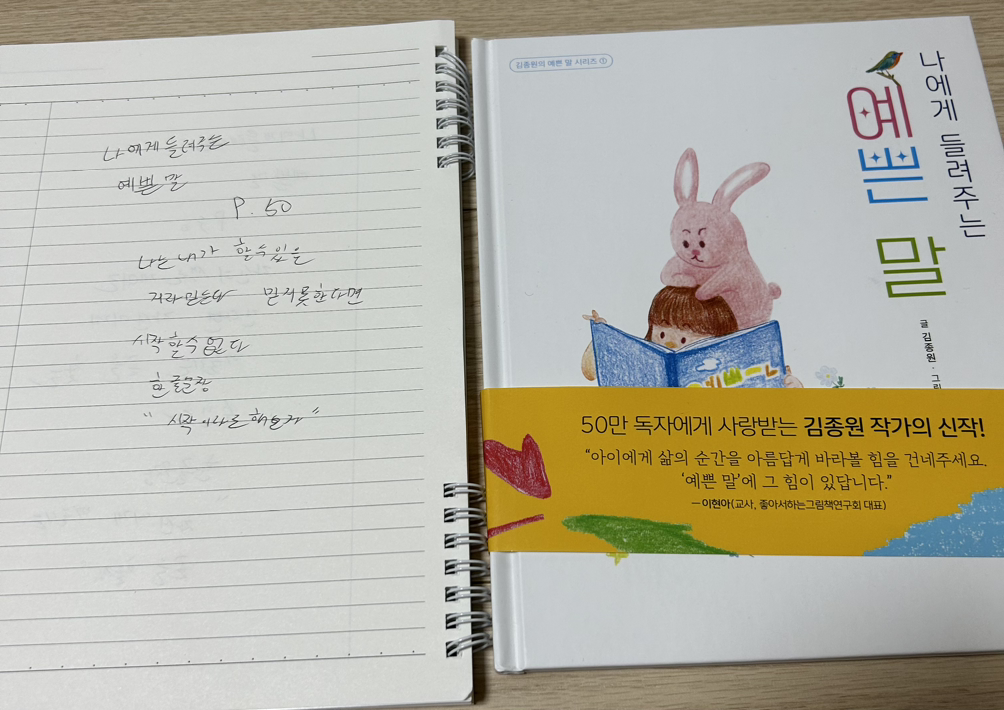 나에게 들려주는
예쁜 말
P. 50
나는 내가 할수있을
거라 믿는다 믿지못한다면
시작할수없다
한 줄문장
" 시작이라도 해보자 "
김종원의 예쁜 말 시리즈 ①
나에게 들려주는
예쁜 말
글 김종원 · 그
50만 독자에게 사랑받는 김종원 작가의 신작!
“아이에게 삶의 순간을 아름답게 바라볼 힘을 건네주세요.
‘예쁜 말’에 그 힘이 있답니다.”
— 이현아(교사, 좋아서하는그림책연구회 대표)